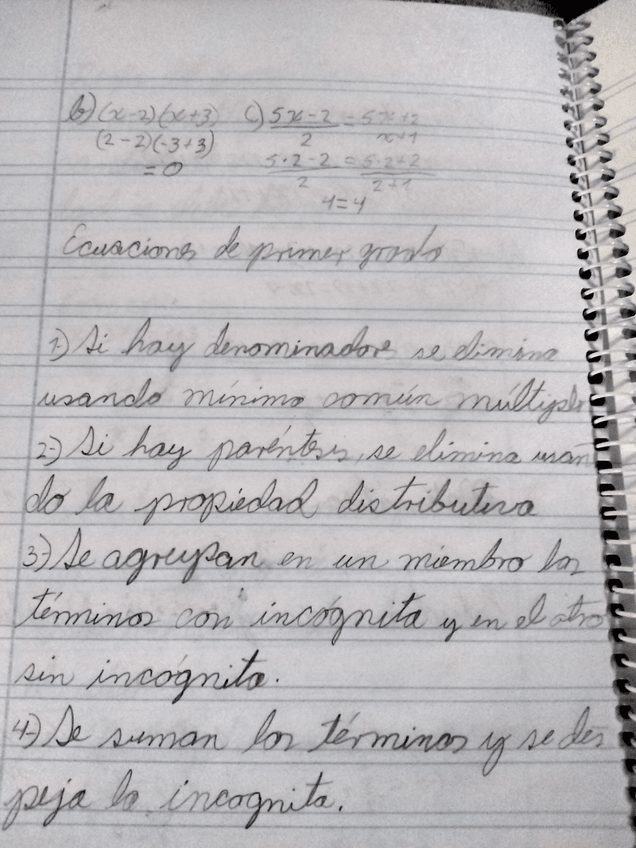 b) (x-2)(x+3)
(2-2)(-3+3)
=0
c) (5x-2)/2 = (5x+2)/(x+1)
(5·2-2)/2 = (5·2+2)/(2+1)
4=4
Ecuaciones de primer grado
1-) Si hay denominadore se elimina
usando mínimo común múltiplo
2-) Si hay paréntesis, se elimina usan
do la propiedad distributiva
3-) Se agrupan en un miembro los
términos con incógnita y en el otro
sin incógnita.
4-) Se suman los términos y se des
peja la incognita.